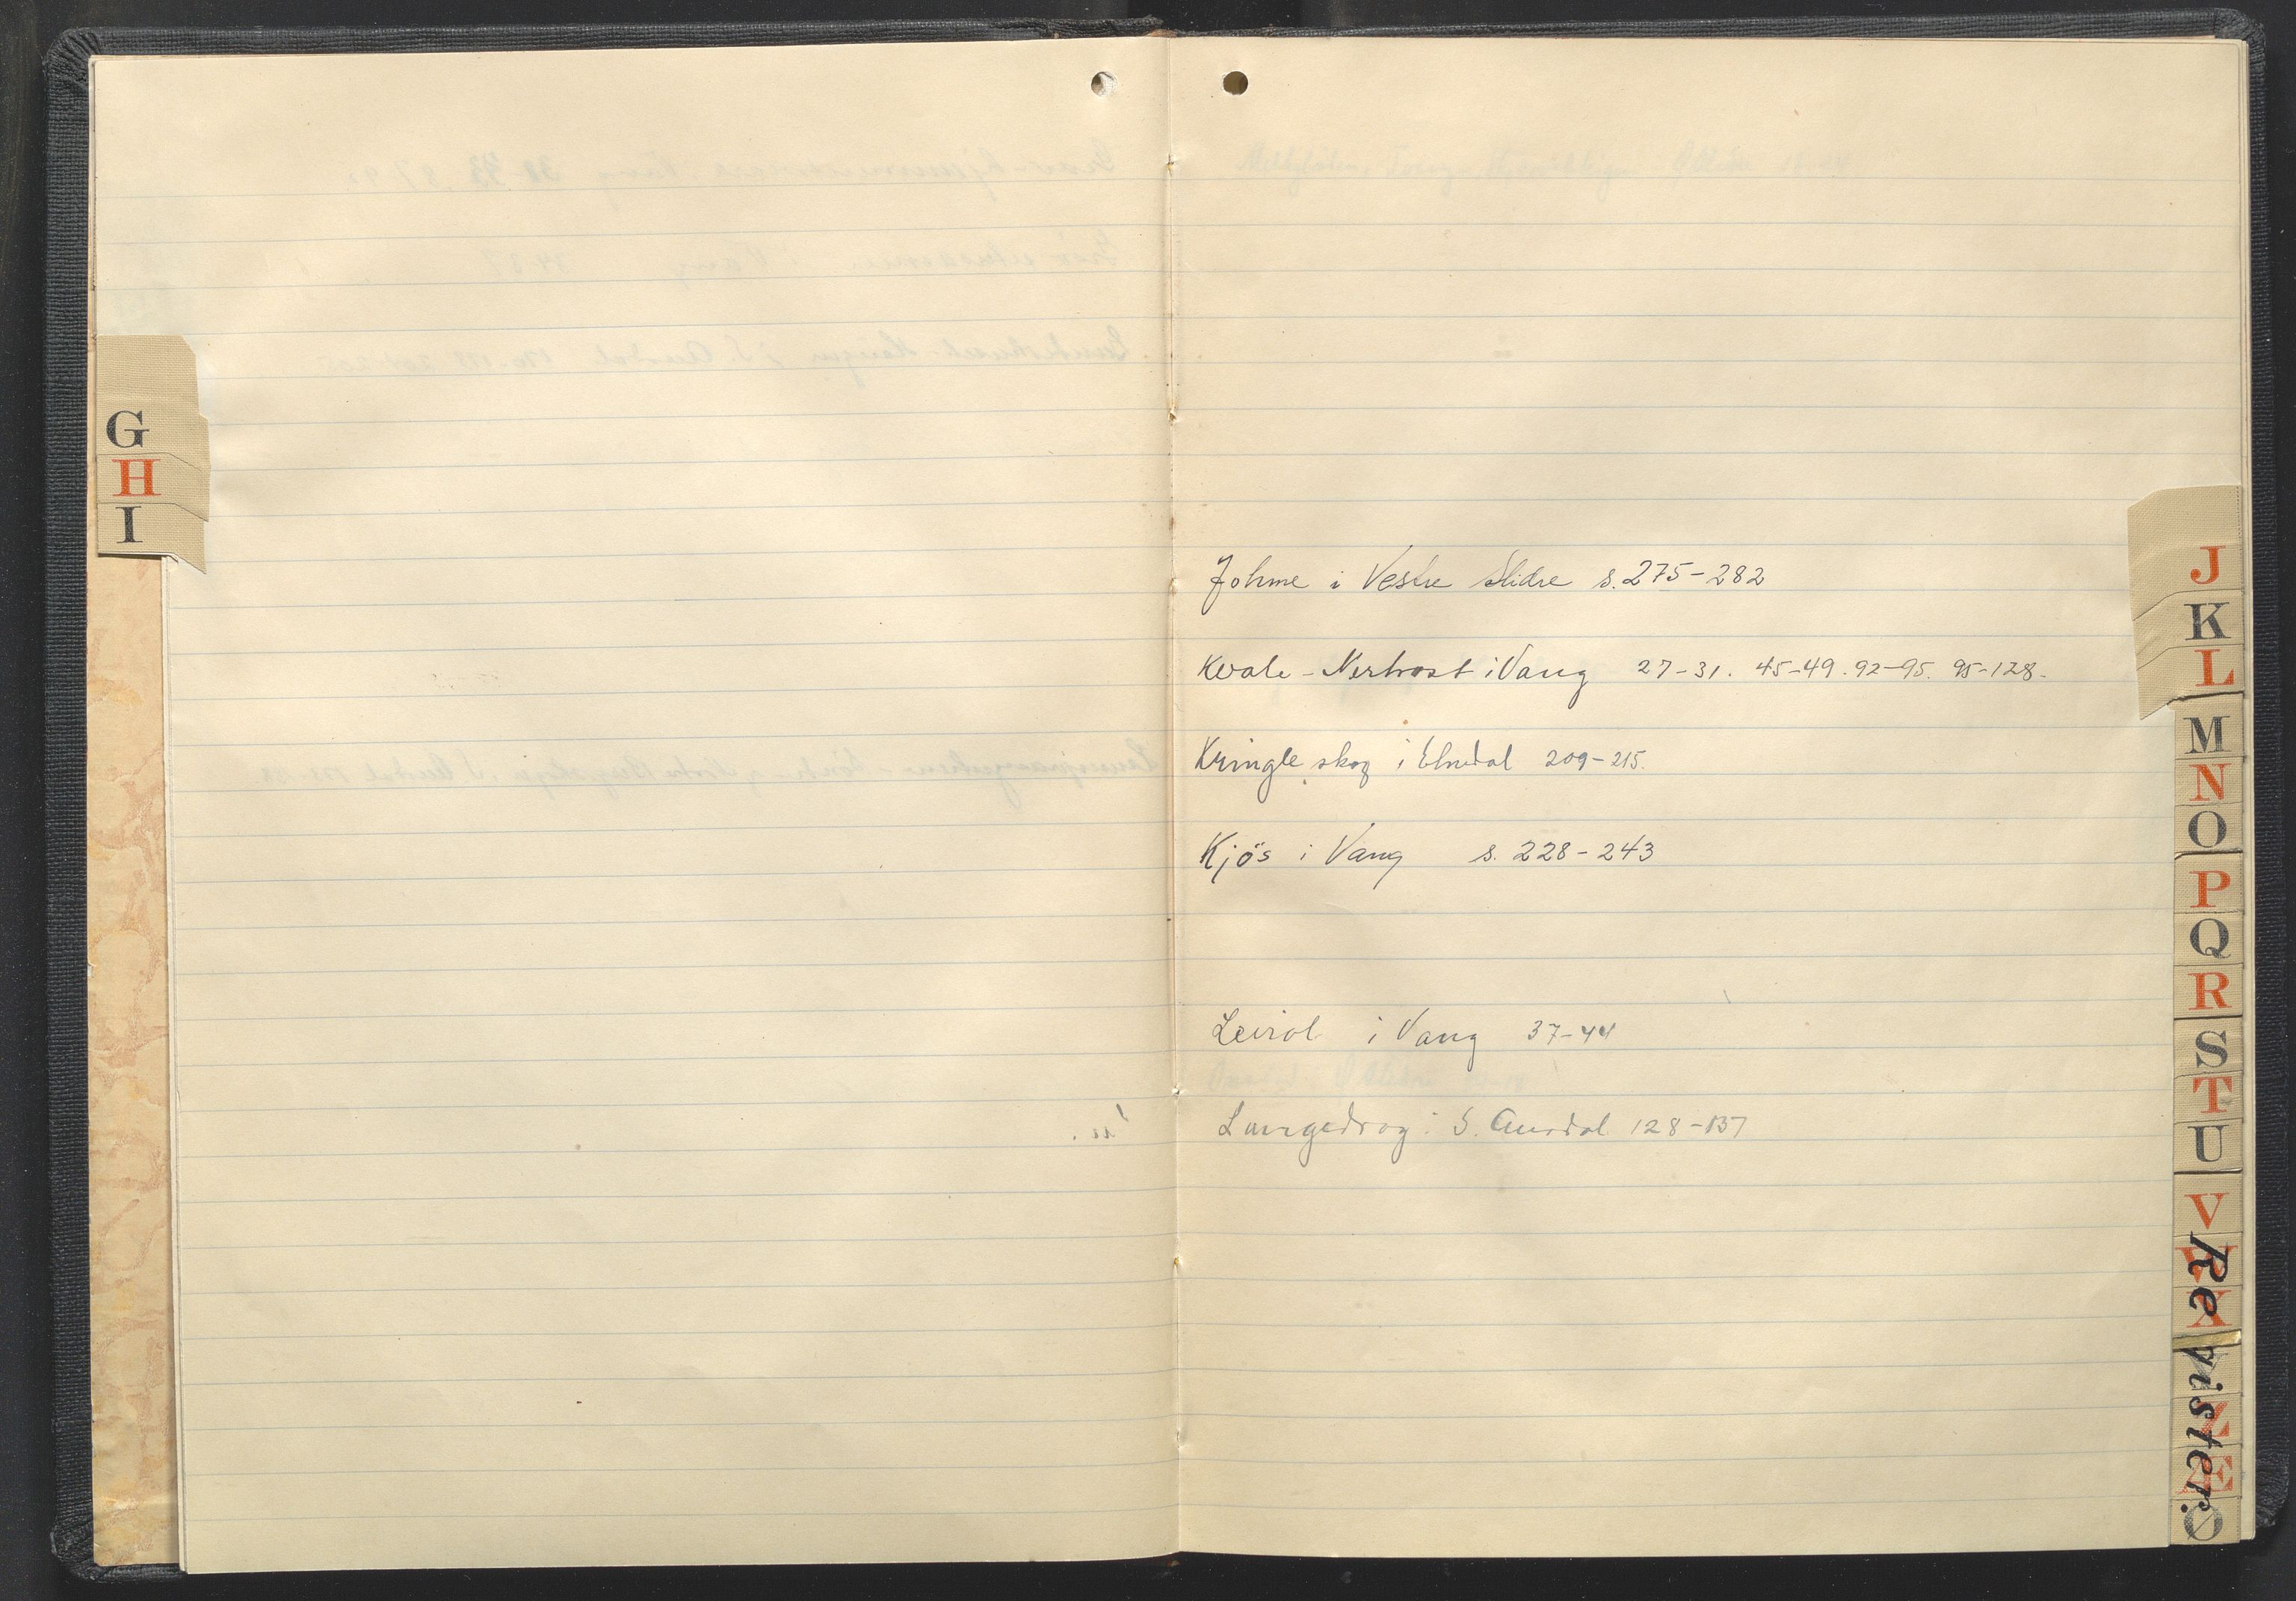 G
H
I
Johme i Vestre Slidre s. 275-282
Kvale - Nertrost i Vang 27-31. 45-49. 92-95. 95-128.
Kringle skog i Etnedal 209-215.
Kjös i Vang s. 228-243
Leirol i Vang 37-44
Langedrag i S. Aurdal 128-137
J
K
L
M
N
O
P
Q
R
S
T
U
V
W
X
Z
Æ
Ø
Revister.